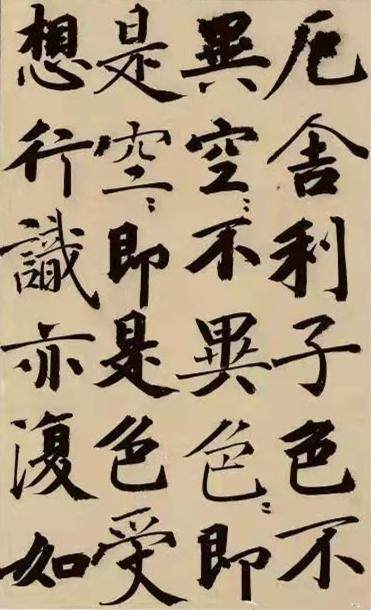 厄舍利子色不
異空〻不異色〻即
是空〻即是色受
想行識亦復如